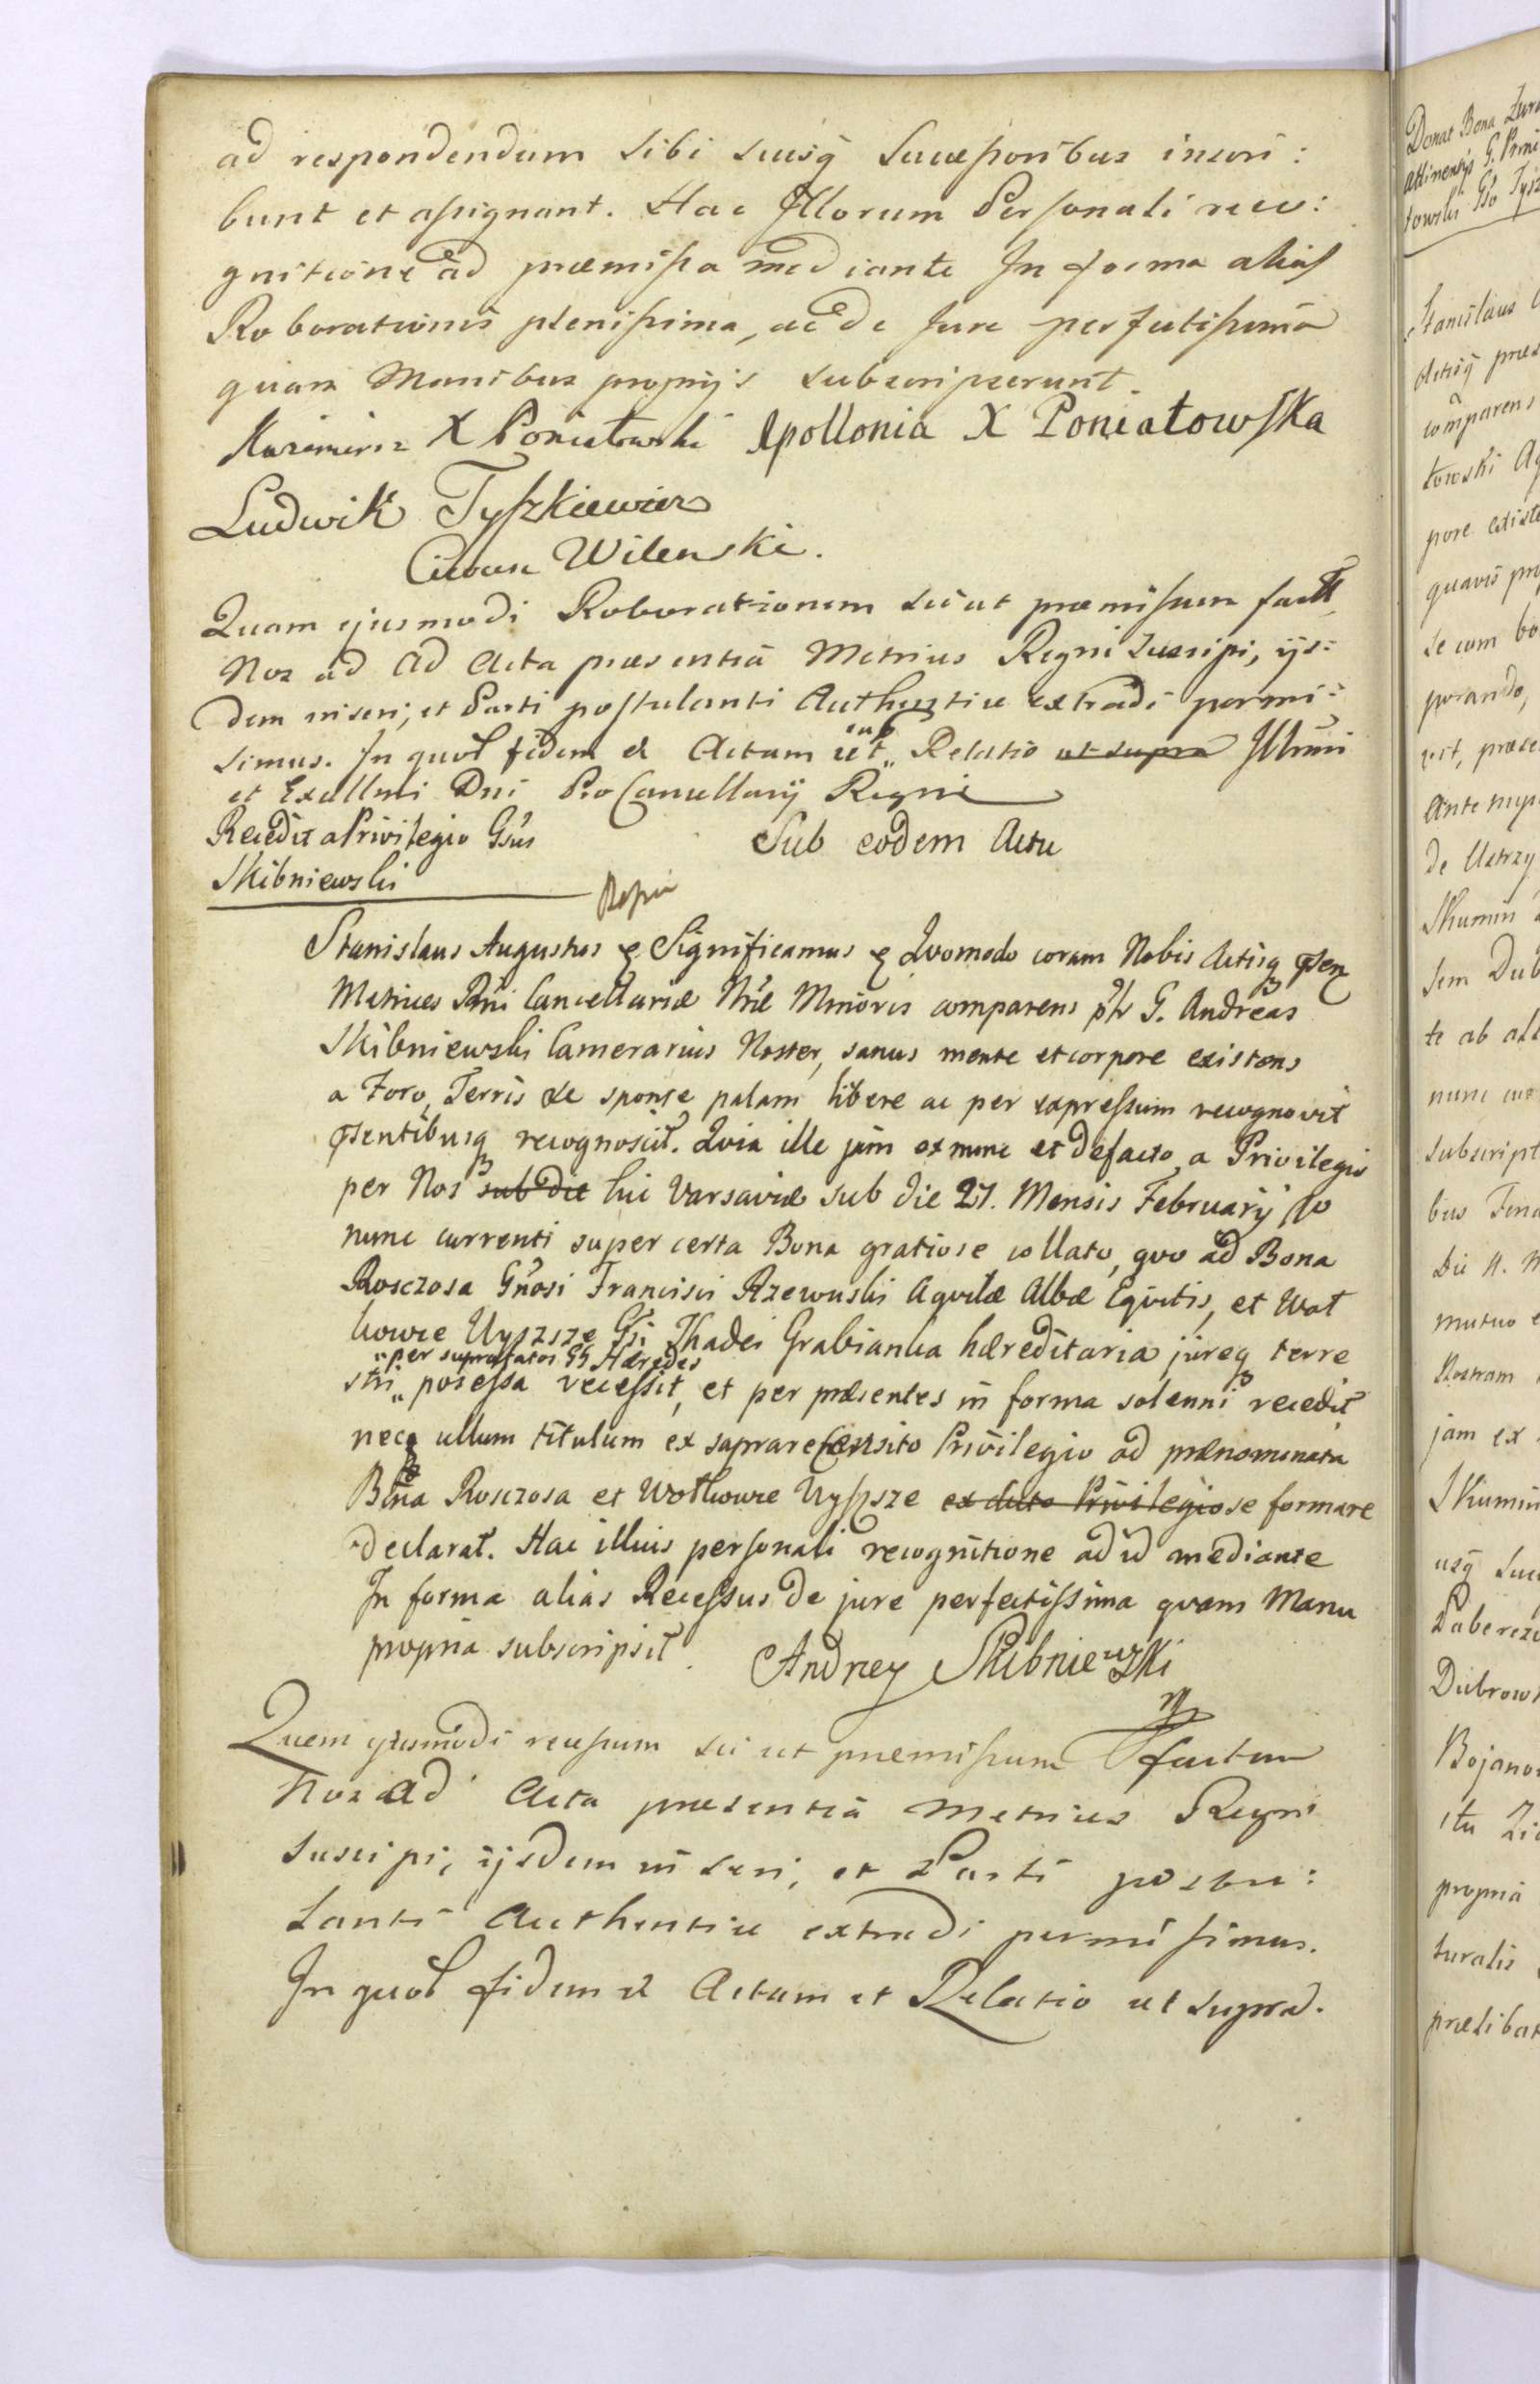 ad respondendum sibi suisq̃ Successoribus inscri:
bunt et assignant. Hac Illorum Personali reco:
gnitione ad præmissa mediante In forma alias
Roborationis plenissima, ac de Jure perfectissima
quam Manibus proprijs subscripserunt.
Kazimierz X Poniatowski Apollonia X Poniatowska
Ludwik Tyszkiewicz
Ciwun Wilenski.
Quam ejusmodi Roborationem sicut præmissum
Nos ad Ad Acta præsentia Metrices Regni Suscipi, ijs:
dem inseri, et Parti postulanti Authentice extradi permi:
simus. In quor̃ fidem et Actum ut sub Relatio ut supra Illmi
et Excellmi Dni Pro Cancellarij Regni
Recedit a Privilegio Gsus
Skibniewski
Sub eodem Actu
Stanislaus Augustus & Significamus & Quomodo coram Nobis Actisq
Metrices Rni Cancellariæ Nræ Minoris comparens G. Andreas
Skibniewski Camerarius Noster, sanus mente et corpore existens
a Foro, Terris se sponte palam libere ac per expressum recognovit
psentibusq recognoscit. Quia ille jam ex nunc et defacto, a Privilegio
per Nos sub die hic Varsaviæ sub die 21. Mensis February
nunc currenti super certa Bona gratiose collato, quo ad Bona
Rosczosa Gnosi Francisci Rzewuski Aquilæ Albæ Equitis, et Woł
kowce Uyszsze Gsi Thadei Grabianka hæreditaria jureq terre
" per suprafatos GG Hæredes
stri " posessa recessit, et per præsentes in forma solenni recedit
necq ullum titulum ex saprarecensito Privilegio ad prænominata
Bona Rosczosa et Wołkowce Uyszsze ex dicto Privilegio se formare
declarat. Hac illius personali recognitione ad id mediante
In forma alias Recessus de jure perfectissima quam Manu
propria subscripsit. Andrzey Skibniewski
mp
Quem ejusmodi recessum sicut præmissum factum
Nos ad Acta præsentia Metrices Regni
suscipi, ijsdem inseri, et Parti postu:
lanti Authentice extradi permissimus.
In quor̃ fidem et Actum et Relatio ut supra.
Donat Bona
attinentijs G.
towski Gso
Stanislaus
Actisq præs
comparens
towski
pore existe
quavis
se cum
parando,
ante
de Ustrzy
Skumin
sem Dub
te ab all
nunc
subscript
bus
Die
mutuo
Nostram
jam ex
Skumin
usq̃ suc
Dubrow
Bojano
propria
turalis
prælibat